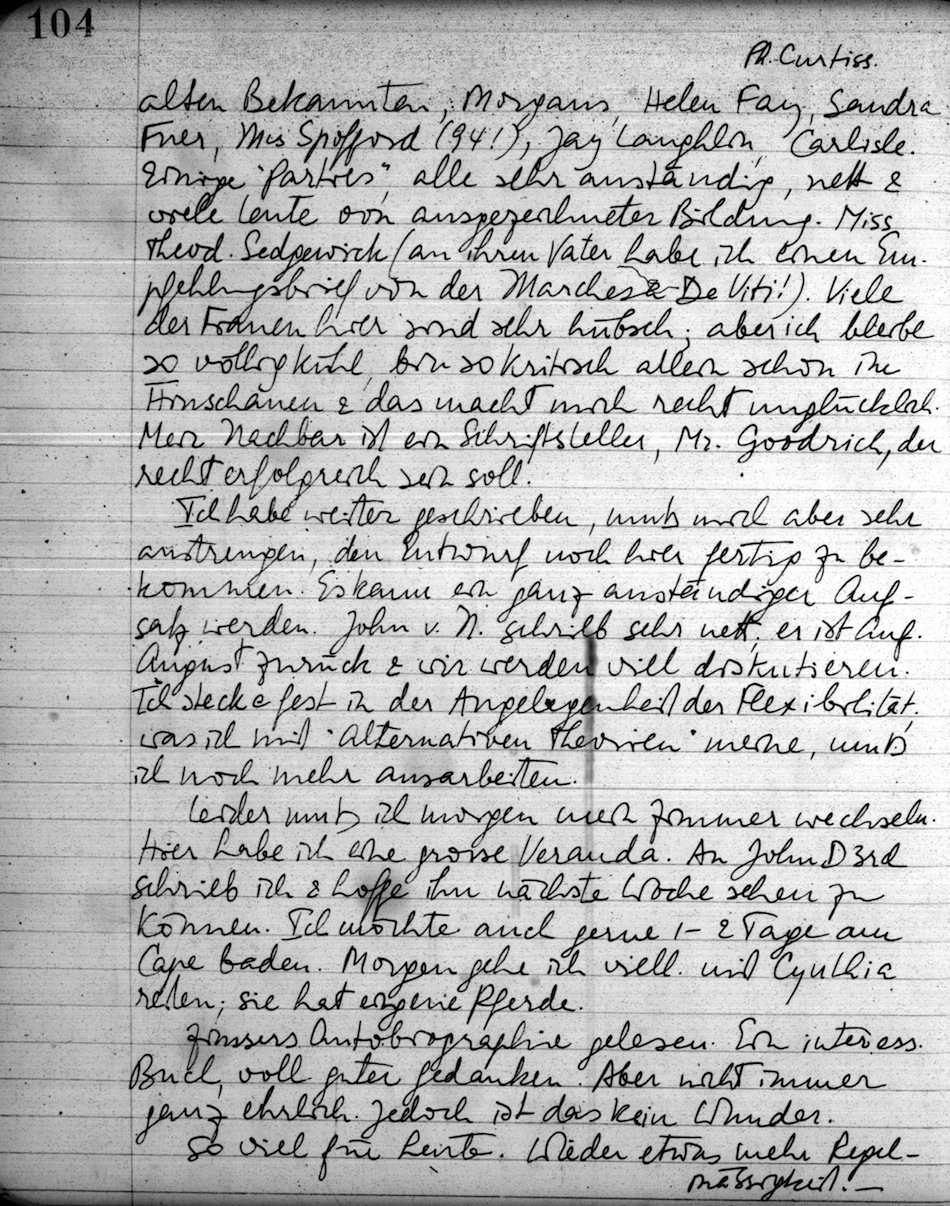 104
Ph. Curtiss.
alten Bekannten, Morgans, Helen Fay, Sandra
Frier, Mrs Spofford (94!), Jay Laughlin, Carlisle.
Einige "Parties", alle sehr anständig, nett &
viele Leute von ausgezeichneter Bildung. Miss
Theod. Sedgewick (an ihren Vater habe ich einen Em-
pfehlungsbrief von der Marchesa De Viti!). Viele
der Frauen hier sind sehr hübsch; aber ich bleibe
so völlig kühl, bin so kritisch allein schon im
Hinschauen & das macht mich recht unglücklich.
Mein Nachbar ist ein Schriftsteller, Mr. Goodrich, der
recht erfolgreich sein soll.
Ich habe weiter geschrieben, muss mich aber sehr
anstrengen, den Entwurf noch hier fertig zu be-
kommen. Es kann ein ganz anständiger Auf-
satz werden. John v. N. schrieb sehr nett, er ist Anf.
August zurück & wir werden viel diskutieren.
Ich stecke fest in der Angelegenheit der Flexibilität.
was ich mit "Alternativen Theorien" meine, muss
ich noch mehr ausarbeiten.
Leider muss ich morgen mein Zimmer wechseln.
Hier habe ich eine grosse Veranda. An John D 3rd
schrieb ich & hoffe ihn nächste Woche sehen zu
können. Ich möchte auch gerne 1-2 Tage am
Cape baden. Morgen gehe ich viell. mit Cynthia
reiten; sie hat eigene Pferde.
Zinssers Autobiographie gelesen. Ein interess.
Buch, voll guter Gedanken. Aber nicht immer
ganz ehrlich. Jedoch ist das kein Wunder.
So viel für heute. Wieder etwas mehr Regel-
mässigkeit. —